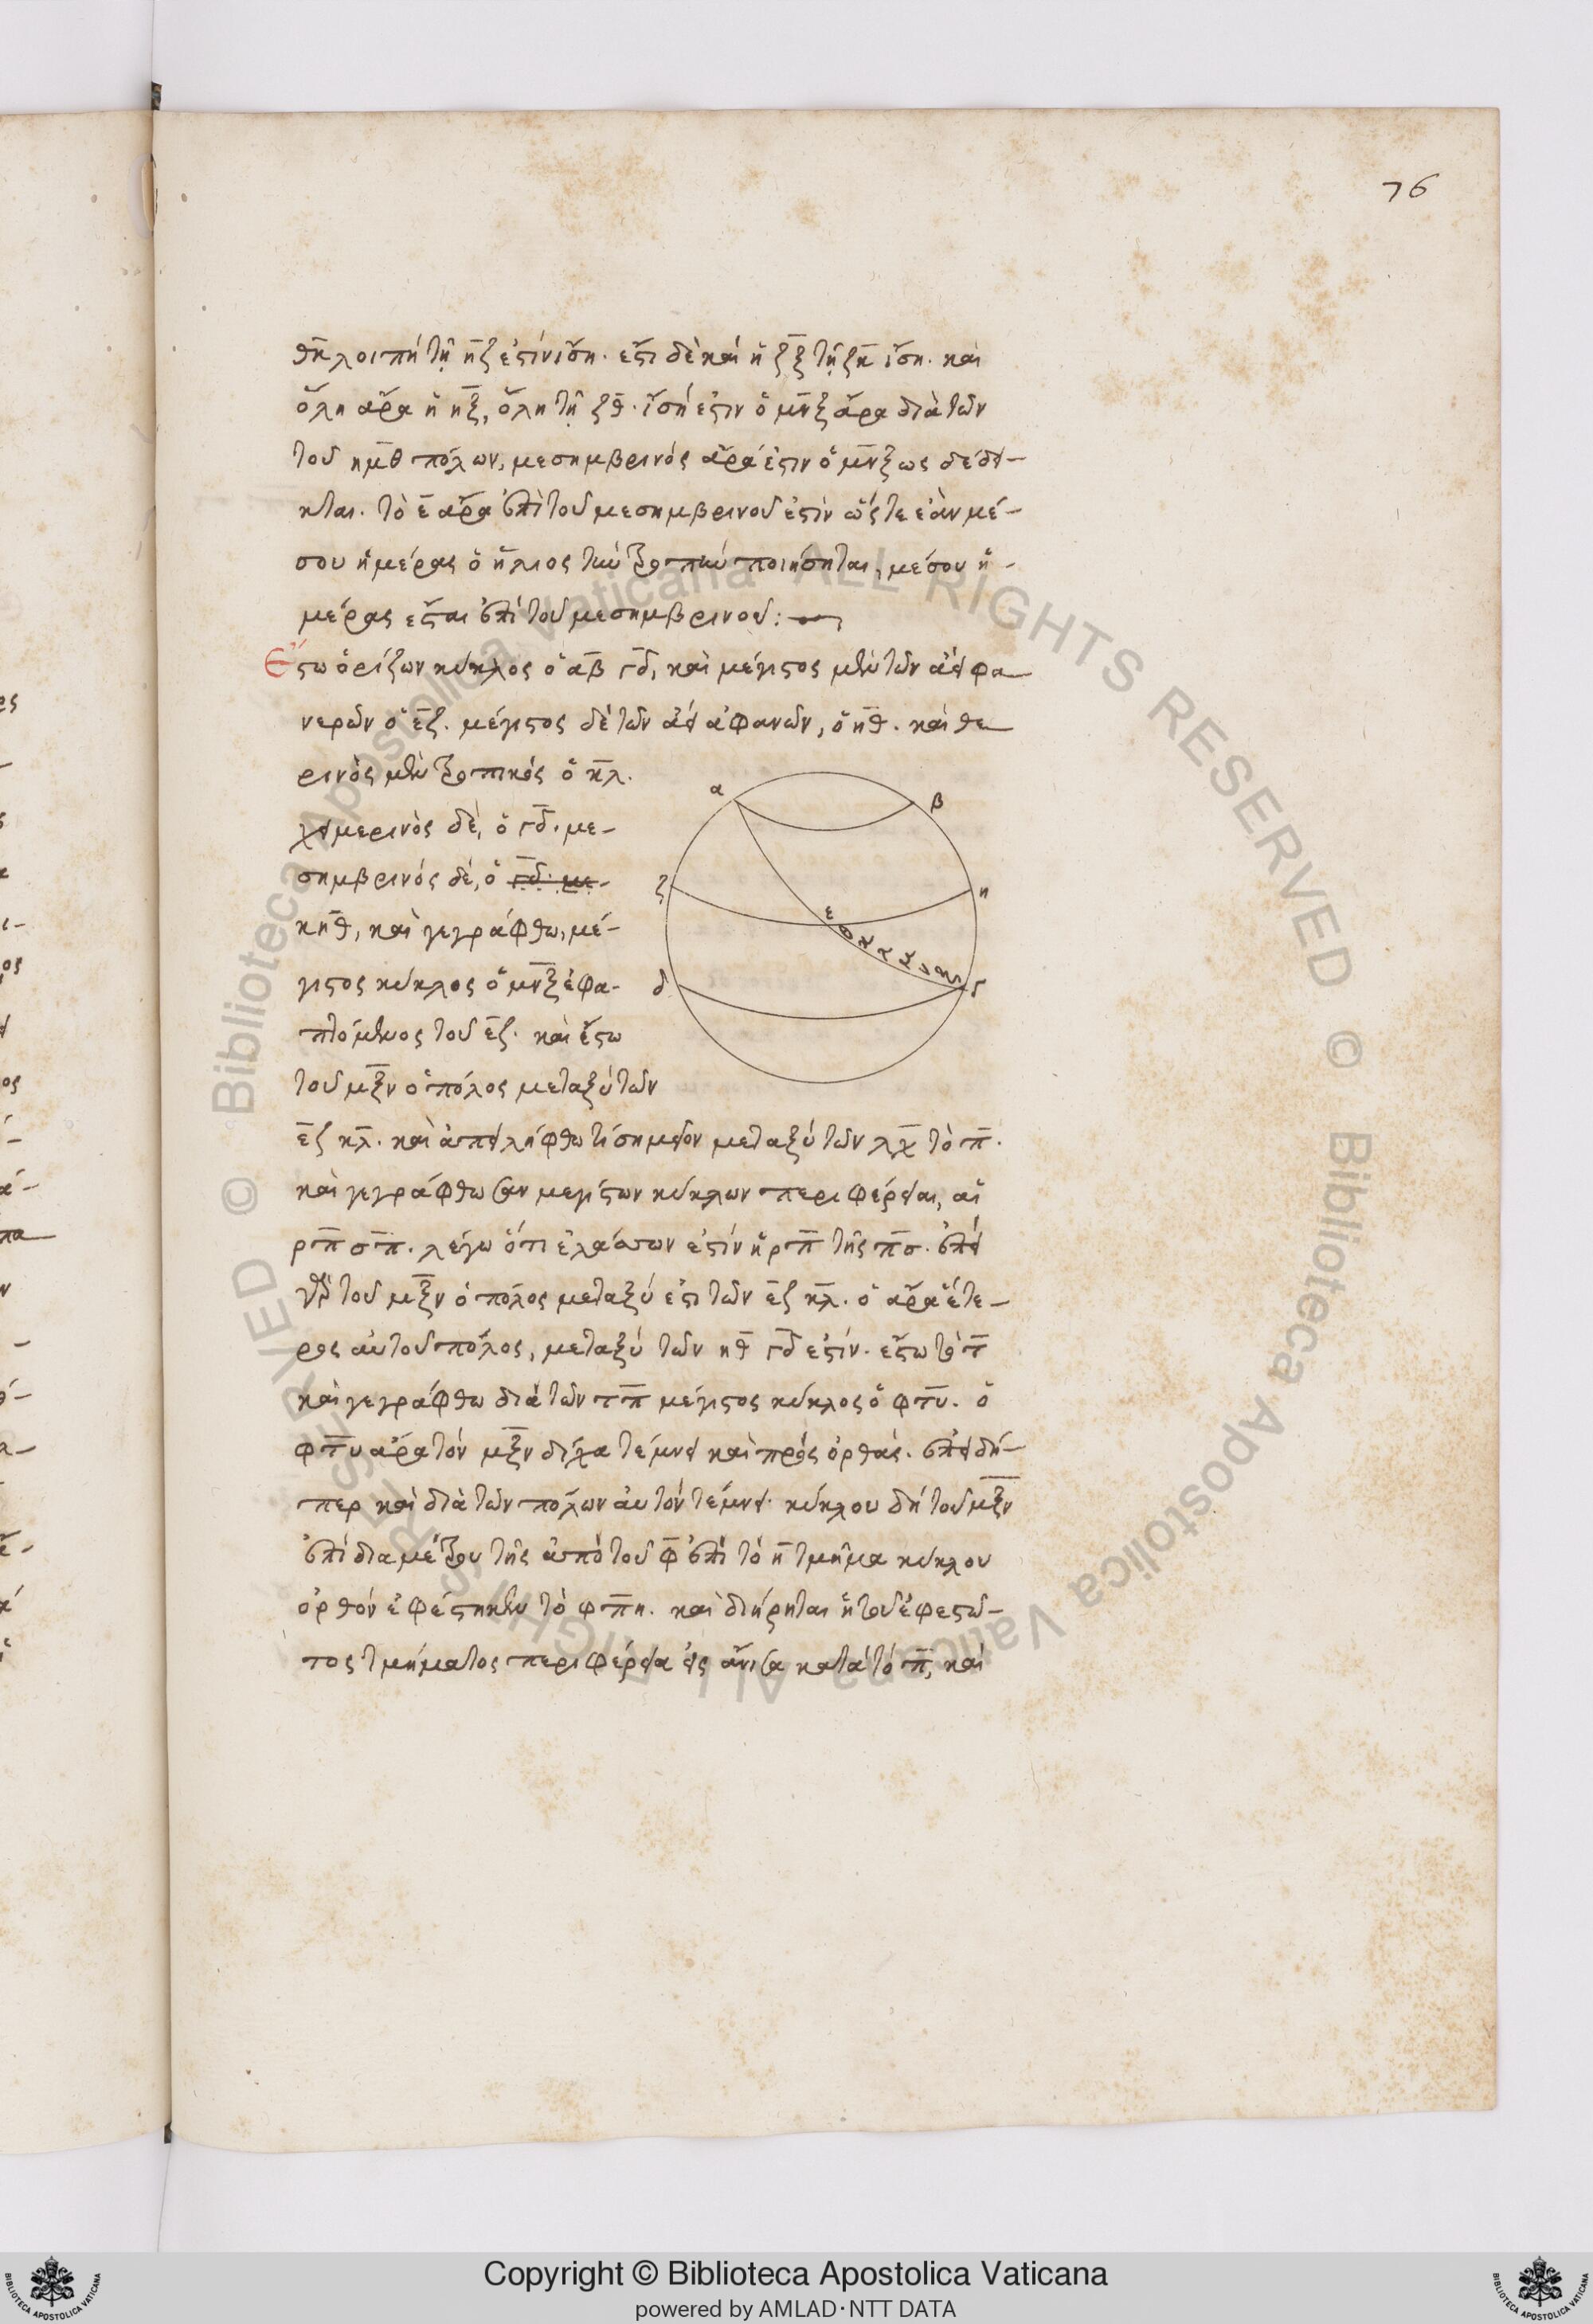 76
θκ λοιπὴ τῇ ηζ ἐστὶν ἴση. ἔστι δὲ καὶ ἡ ζξ τῇ ζκ ἴση. καὶ
ὅλη ἄρα ἡ ηξ, ὅλη τῇ ζθ. ἴση ἐστιν ὁ μνξ ἄρα διὰ τῶν
τοῦ ημθ πόλων, μεσημβρινός ἄρα ἐστιν ὁ μνξ ως δέδει-
κται. τὸ ε ἄρα ἐπὶ τοῦ μεσημβρινοῦ ἐστὶν ὥστε ἐὰν μέ-
σου ἡμέρας ὁ ἥλιος τὴν τροπὴν ποιήσηται, μέσου ἡ-
μέρας ἔσται ἐπὶ τοῦ μεσημβρινοῦ:
Ἔστω ὁρίζων κύκλος ὁ αβ γδ, καὶ μέγιστος μὲν τῶν ἀεὶ φα
νερῶν ὁ εζ. μέγιστος δὲ τῶν ἀεὶ ἀφανῶν, ὁ ηθ. καὶ θε
ρινὸς μὲν τροπικός ὁ κλ.
χειμερινὸς δὲ, ὁ γδ. με-
σημβρινός δέ, ὁ γδ. με-
κηθ, καὶ γεγράφθω, μέ-
γιστος κύκλος ὁ μνξ ἐφα-
πτόμενος τοῦ εζ. καὶ ἔστω
τοῦ μξν ὁ πόλος μεταξὺ τῶν
εζ κλ. καὶ ἀπειλήφθω τι σημεῖον μεταξὺ τῶν λχ τὸ π.
καὶ γεγράφθωσαν μεγίστων κύκλων περιφέρειαι, αἱ
ρπ σπ. λέγω ὅτι ἐλάσσων ἐστίν ἡ ρπ τῆς πσ. ἐπεὶ
γὰρ τοῦ μξν ὁ πόλος μεταξύ ἐστι τῶν εζ κλ. ὁ ἄρα ἕτε-
ρος αὐτοῦ πόλος, μεταξὺ τῶν ηθ γδ ἐστίν. ἔστω τὸ τ
καὶ γεγράφθω διὰ τῶν τπ μέγιστος κύκλος ὁ φπυ. ὁ
φπυ ἄρα τὸν μξν δίχα τέμνει καὶ πρὸς ὀρθάς. ἐπειδή-
περ καὶ διὰ τῶν πόλων αὐτὸν τέμνει. κύκλου δὴ τοῦ μξν
ἐπὶ διαμέτρου τῆς ἀπὸ τοῦ φ ἐπὶ τὸ η τμῆμα κύκλου
ὀρθόν ἐφέστηκεν τὸ φπη. καὶ διήρηται ἡ τοῦ ἐφεστῶ-
τος τμήματος περιφέρεια εἰς ἄνισα κατὰ τό π, καὶ
α
β
ζ
η
ε
δ
γ
Copyright © Biblioteca Apostolica Vaticana
powered by AMLAD·NTT DATA
BIBLIOTECA APOSTOLICA VATICANA
BIBLIOTECA APOSTOLICA VATICANA
© Biblioteca Apostolica Vaticana ALL RIGHTS RESERVED © Biblioteca Apostolica Vaticana ALL RIGHTS RESERVED